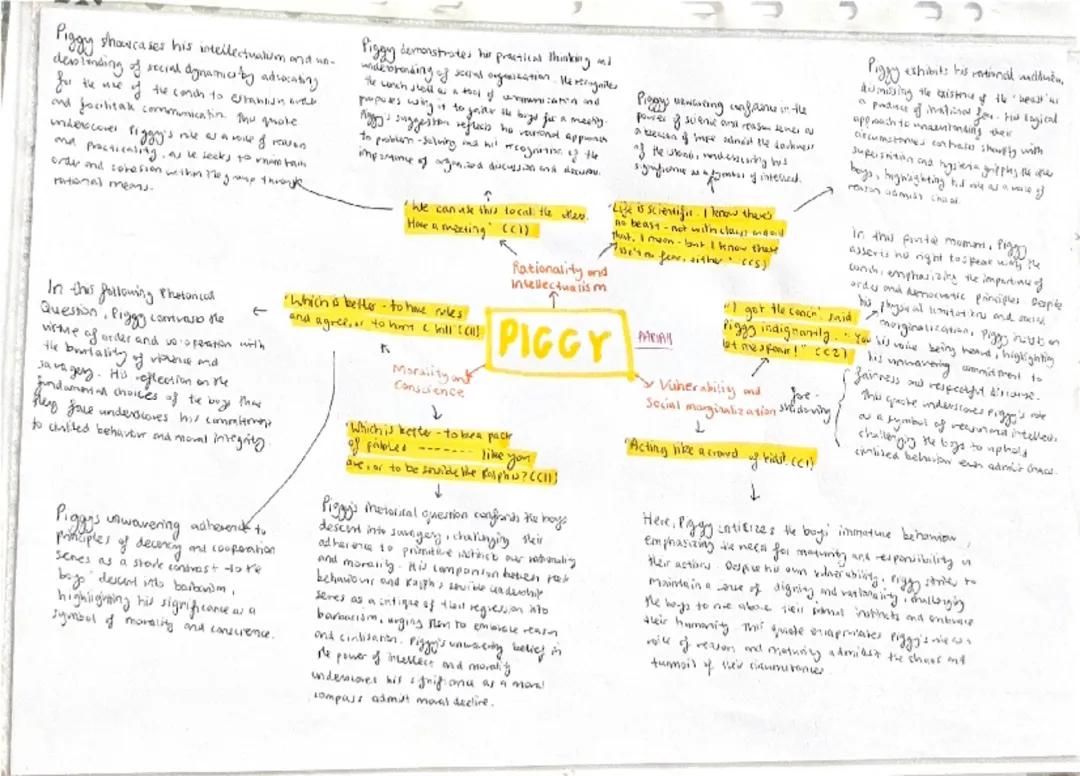 Piggy showcases his intellectualism and un-
derstanding of social dynamics by advocating
for the use of the conch to establish order
and facilitate communication. This quote
underscores Piggy's role as a voice of reason
and practicality, as he seeks to maintain
order and cohesion within the group through
rational means.
Piggy demonstrates his practical thinking and
understanding of social organization. He recognizes
the conch shell as a tool of communication and
proposes using it to gather the boys for a meeting.
Piggy's suggestion reflects his rational approach
to problem-solving and his recognition of the
importance of organized discussion and decision.
Piggy's unwavering confidence in the
power of science and reason serves as
a beacon of hope admist the darkness
of the island, underscoring his
significance as a symbol of intellect.
Piggy exhibits his rational
dismissing the existence of the 'beast' as
a product of irrational fear. His logical
approach to understanding their
circumstances contrasts sharply with
superstition and hysteria gripping the other
boys, highlighting his role as a voice of
reason admist chaos.
'We can use this to call the others.
Have a meeting' (C1)
'Life is scientific. I know there's
no beast - not with claws and all
that, I mean - but I know there
isn't no fear, either' (C5)
Rationality and
Intellectualism
PIGGY
PARIAH
'Which is better - to have rules
and agree, or to hunt & kill' (C11)
In this following Rhetorical
Question, Piggy contrasts the
virtue of order and co-operation with
the brutality of violence and
savagery. His reflection on the
fundamental choices of the boys that
they face underscores his commitment
to civilised behavior and moral integrity.
Morality and
Conscience
Vulnerability and
Social marginalization
fore-
shadowing
"I got the conch", said
Piggy indignantly. "You
let me speak!" (C2)
In this pivotal moment, Piggy
asserts his right to speak with the
conch, emphasizing the importance of
order and democratic principles. Despite
his physical limitations and social
marginalization, Piggy insists on
his voice being heard, highlighting
his unwavering commitment to
fairness and respectful discourse.
This quote underscores Piggy's role
as a symbol of reason and intellect,
challenging the boys to uphold
civilised behavior even admist chaos.
'Which is better - to be a pack
of painted ------- like you
are, or to be sensible like Ralph is? (C11)
'Acting like a crowd of kids!' (C1)
Piggy's unwavering adherence to
principles of decency and cooperation
serves as a stark contrast to the
boys' descent into barbarism,
highlighting his significance as a
symbol of morality and conscience.
Piggy's rhetorical question confronts the boys
descent into savagery, challenging their
adherence to primitive instincts over rationality
and morality. His comparison between pack
behaviours and Ralph's sensible leadership
serves as a critique of their regression into
barbarism, urging them to embrace reason
and civilisation. Piggy's unwavering belief in
the power of intellect and morality
underscores his significance as a moral
compass admist moral decline.
Here, Piggy critisizes the boys' immature behaviour,
Emphasizing the need for maturity and responsibility in
their actions. Despite his own vulnerability, Piggy strives to
maintain a sense of dignity and rationality, challenging
the boys to rise above their primal instincts and embrace
their humanity. This quote encapsulates Piggy's role as a
voice of reason and maturity admidst the chaos and
turmoil of their circumstances